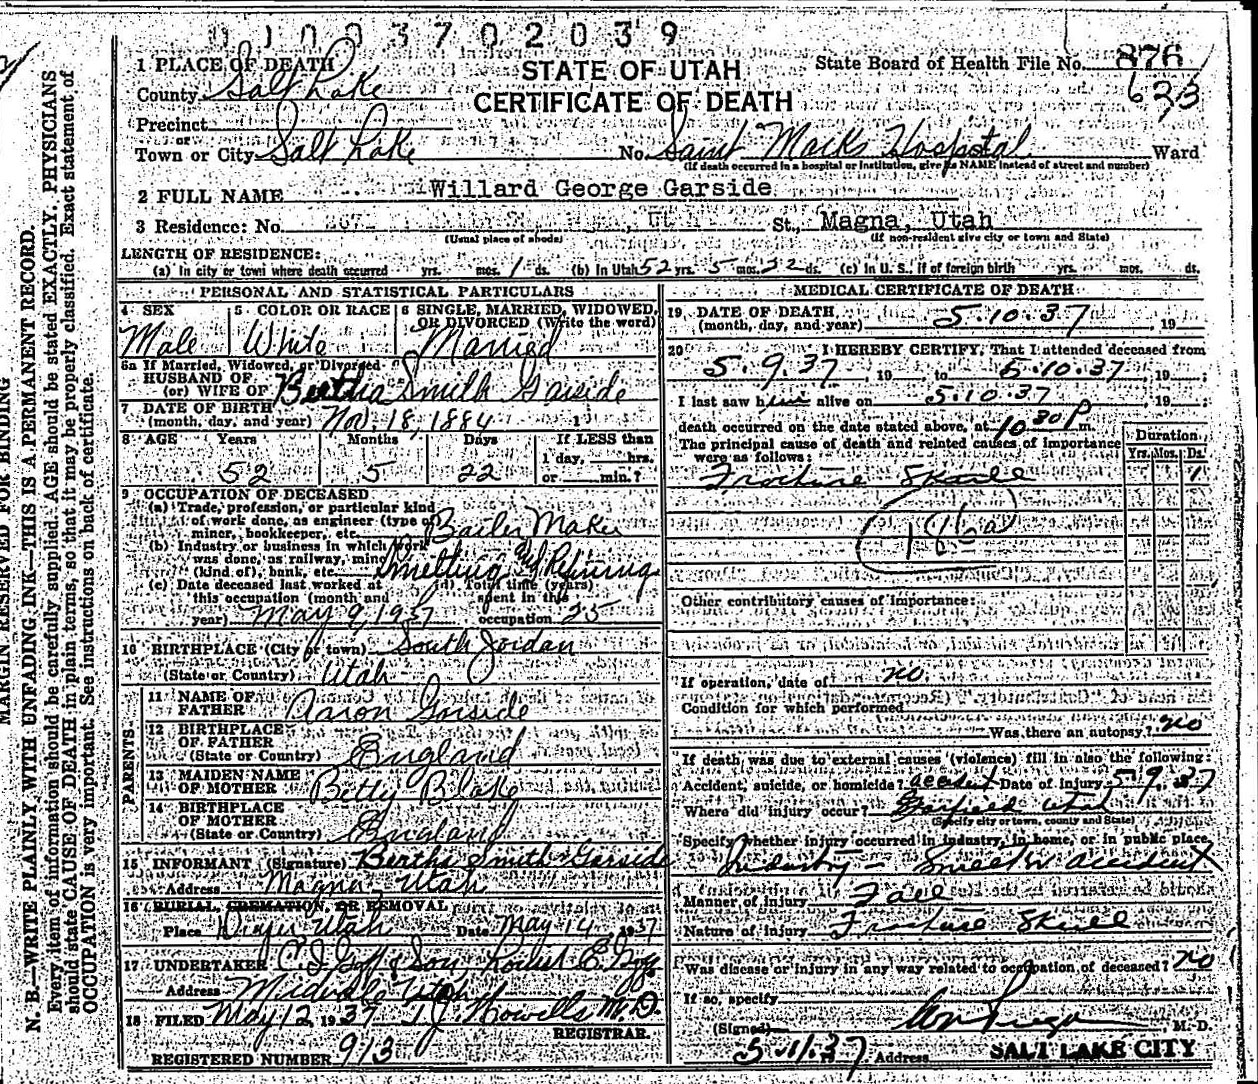 0 1 0 0 3 7 0 2 0 3 9
1 PLACE OF DEATH
County Salt Lake
Precinct
or
Town or City Salt Lake
STATE OF UTAH
CERTIFICATE OF DEATH
State Board of Health File No. 876
633
No. Saint Marks Hospital Ward
(If death occurred in a hospital or institution, give its NAME instead of street and number)
2 FULL NAME Willard George Garside
3 Residence: No. St., Magna, Utah
(Usual place of abode) (If non-resident give city or town and State)
LENGTH OF RESIDENCE:
(a) In city or town where death occurred yrs. mos. 1 ds. (b) In Utah 52 yrs. 5 mos. 22 ds. (c) in U. S., if of foreign birth yrs. mos. ds.
PERSONAL AND STATISTICAL PARTICULARS
4 SEX
Male
5 COLOR OR RACE
White
6 SINGLE, MARRIED, WIDOWED, OR DIVORCED (Write the word)
Married
6a If Married, Widowed, or Divorced
HUSBAND OF
(or) WIFE OF Bertha Smith Garside
7 DATE OF BIRTH
(month, day, and year) Nov. 18, 1884
8 AGE Years Months Days If LESS than
1 day, hrs.
52 5 22 or min.?
9 OCCUPATION OF DECEASED
(a) Trade, profession, or particular kind
of work done, as engineer (type of
miner, bookkeeper, etc. Boiler Maker
(b) Industry or business in which work
was done, as railway, mine
(kind of), bank, etc. Smelting and Refining
(c) Date deceased last worked at
this occupation (month and
year) May 9, 1937
(d) Total time (years)
spent in this
occupation 25
10 BIRTHPLACE (City or town) South Jordan
(State or Country) Utah
PARENTS
11 NAME OF
FATHER Aaron Garside
12 BIRTHPLACE
OF FATHER
(State or Country) England
13 MAIDEN NAME
OF MOTHER Betty Blake
14 BIRTHPLACE
OF MOTHER
(State or Country) England
15 INFORMANT (Signature) Bertha Smith Garside
Address Magna, Utah
16 BURIAL, CREMATION, OR REMOVAL
Place Draper Utah Date May 14, 1937
17 UNDERTAKER C. J. Goff & Son,
Address Midvale Utah
18 FILED May 12, 1937 T. J. Howells M.D.
REGISTRAR.
REGISTERED NUMBER 913
MEDICAL CERTIFICATE OF DEATH
19 DATE OF DEATH
(month, day, and year) 5.10.37, 19
20 I HEREBY CERTIFY, That I attended deceased from
5.9.37, 19 to 5.10.37, 19 ;
I last saw him alive on 5.10.37, 19 ;
death occurred on the date stated above, at 10 30 P m.
The principal cause of death and related causes of importance
were as follows:
Duration
Yrs. Mos. Ds.
Fracture Skull 1
186a
Other contributory causes of importance:
If operation, date of no.
Condition for which performed
Was there an autopsy? no
If death was due to external causes (violence) fill in also the following:
Accident, suicide, or homicide? accident Date of injury 5.9.37
Where did injury occur? Garfield Utah
(Specify city or town, county and State)
Specify whether injury occurred in industry, in home, or in public place.
Industry - Smelter accident
Manner of injury Fall
Nature of injury Fracture Skull
Was disease or injury in any way related to occupation of deceased? no
If so, specify
(Signed) M. D.
5.11.37 Address SALT LAKE CITY
MARGIN RESERVED FOR BINDING
N. B.—WRITE PLAINLY WITH UNFADING INK—THIS IS A PERMANENT RECORD.
Every item of information should be carefully supplied. AGE should be stated EXACTLY. PHYSICIANS
should state CAUSE OF DEATH in plain terms, so that it may be properly classified. Exact statement of
OCCUPATION is very important. See instructions on back of certificate.